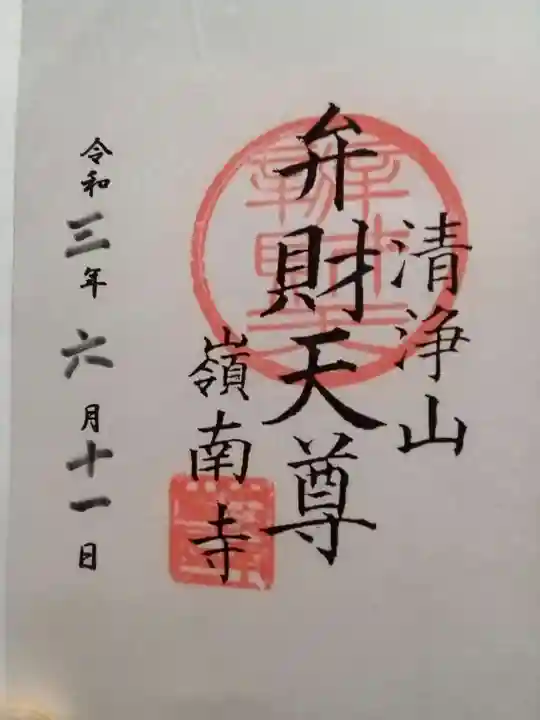 清浄山
弁財天尊
嶺南寺
令和三年六月十一日